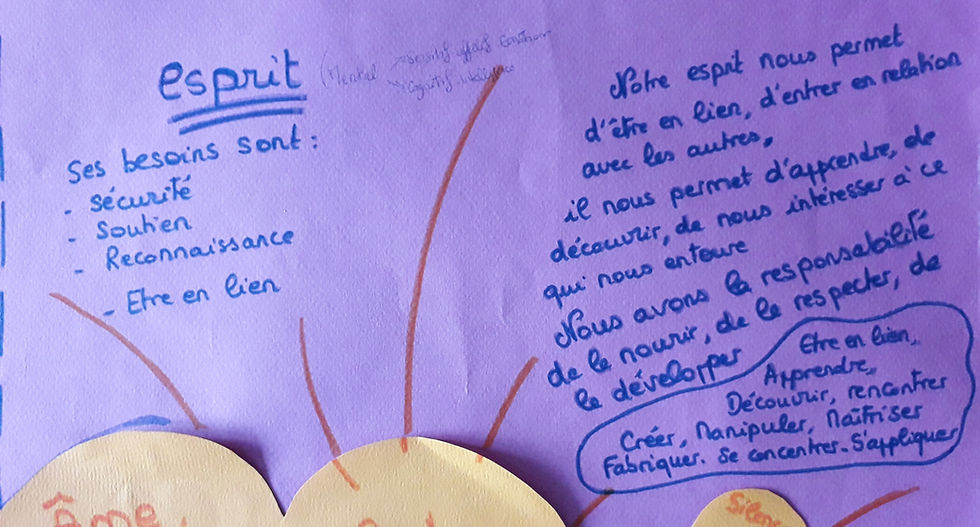 esprit (Mental
Sensitif affectif
Cognitif intelligence
Ses besoins sont :
- Sécurité
- Soutien
- Reconnaissance
- Etre en lien
Notre esprit nous permet
d'être en lien, d'entrer en relation
avec les autres,
il nous permet d'apprendre, de
découvrir, de nous intéresser à ce
qui nous entoure
Nous avons la responsabilité
de le nourrir, de le respecter, de
le développer
Etre en lien,
Apprendre,
Découvrir, rencontrer
Créer, Manipuler, Maîtriser
Fabriquer. Se concentrer. S'appliquer
Âme
Silence